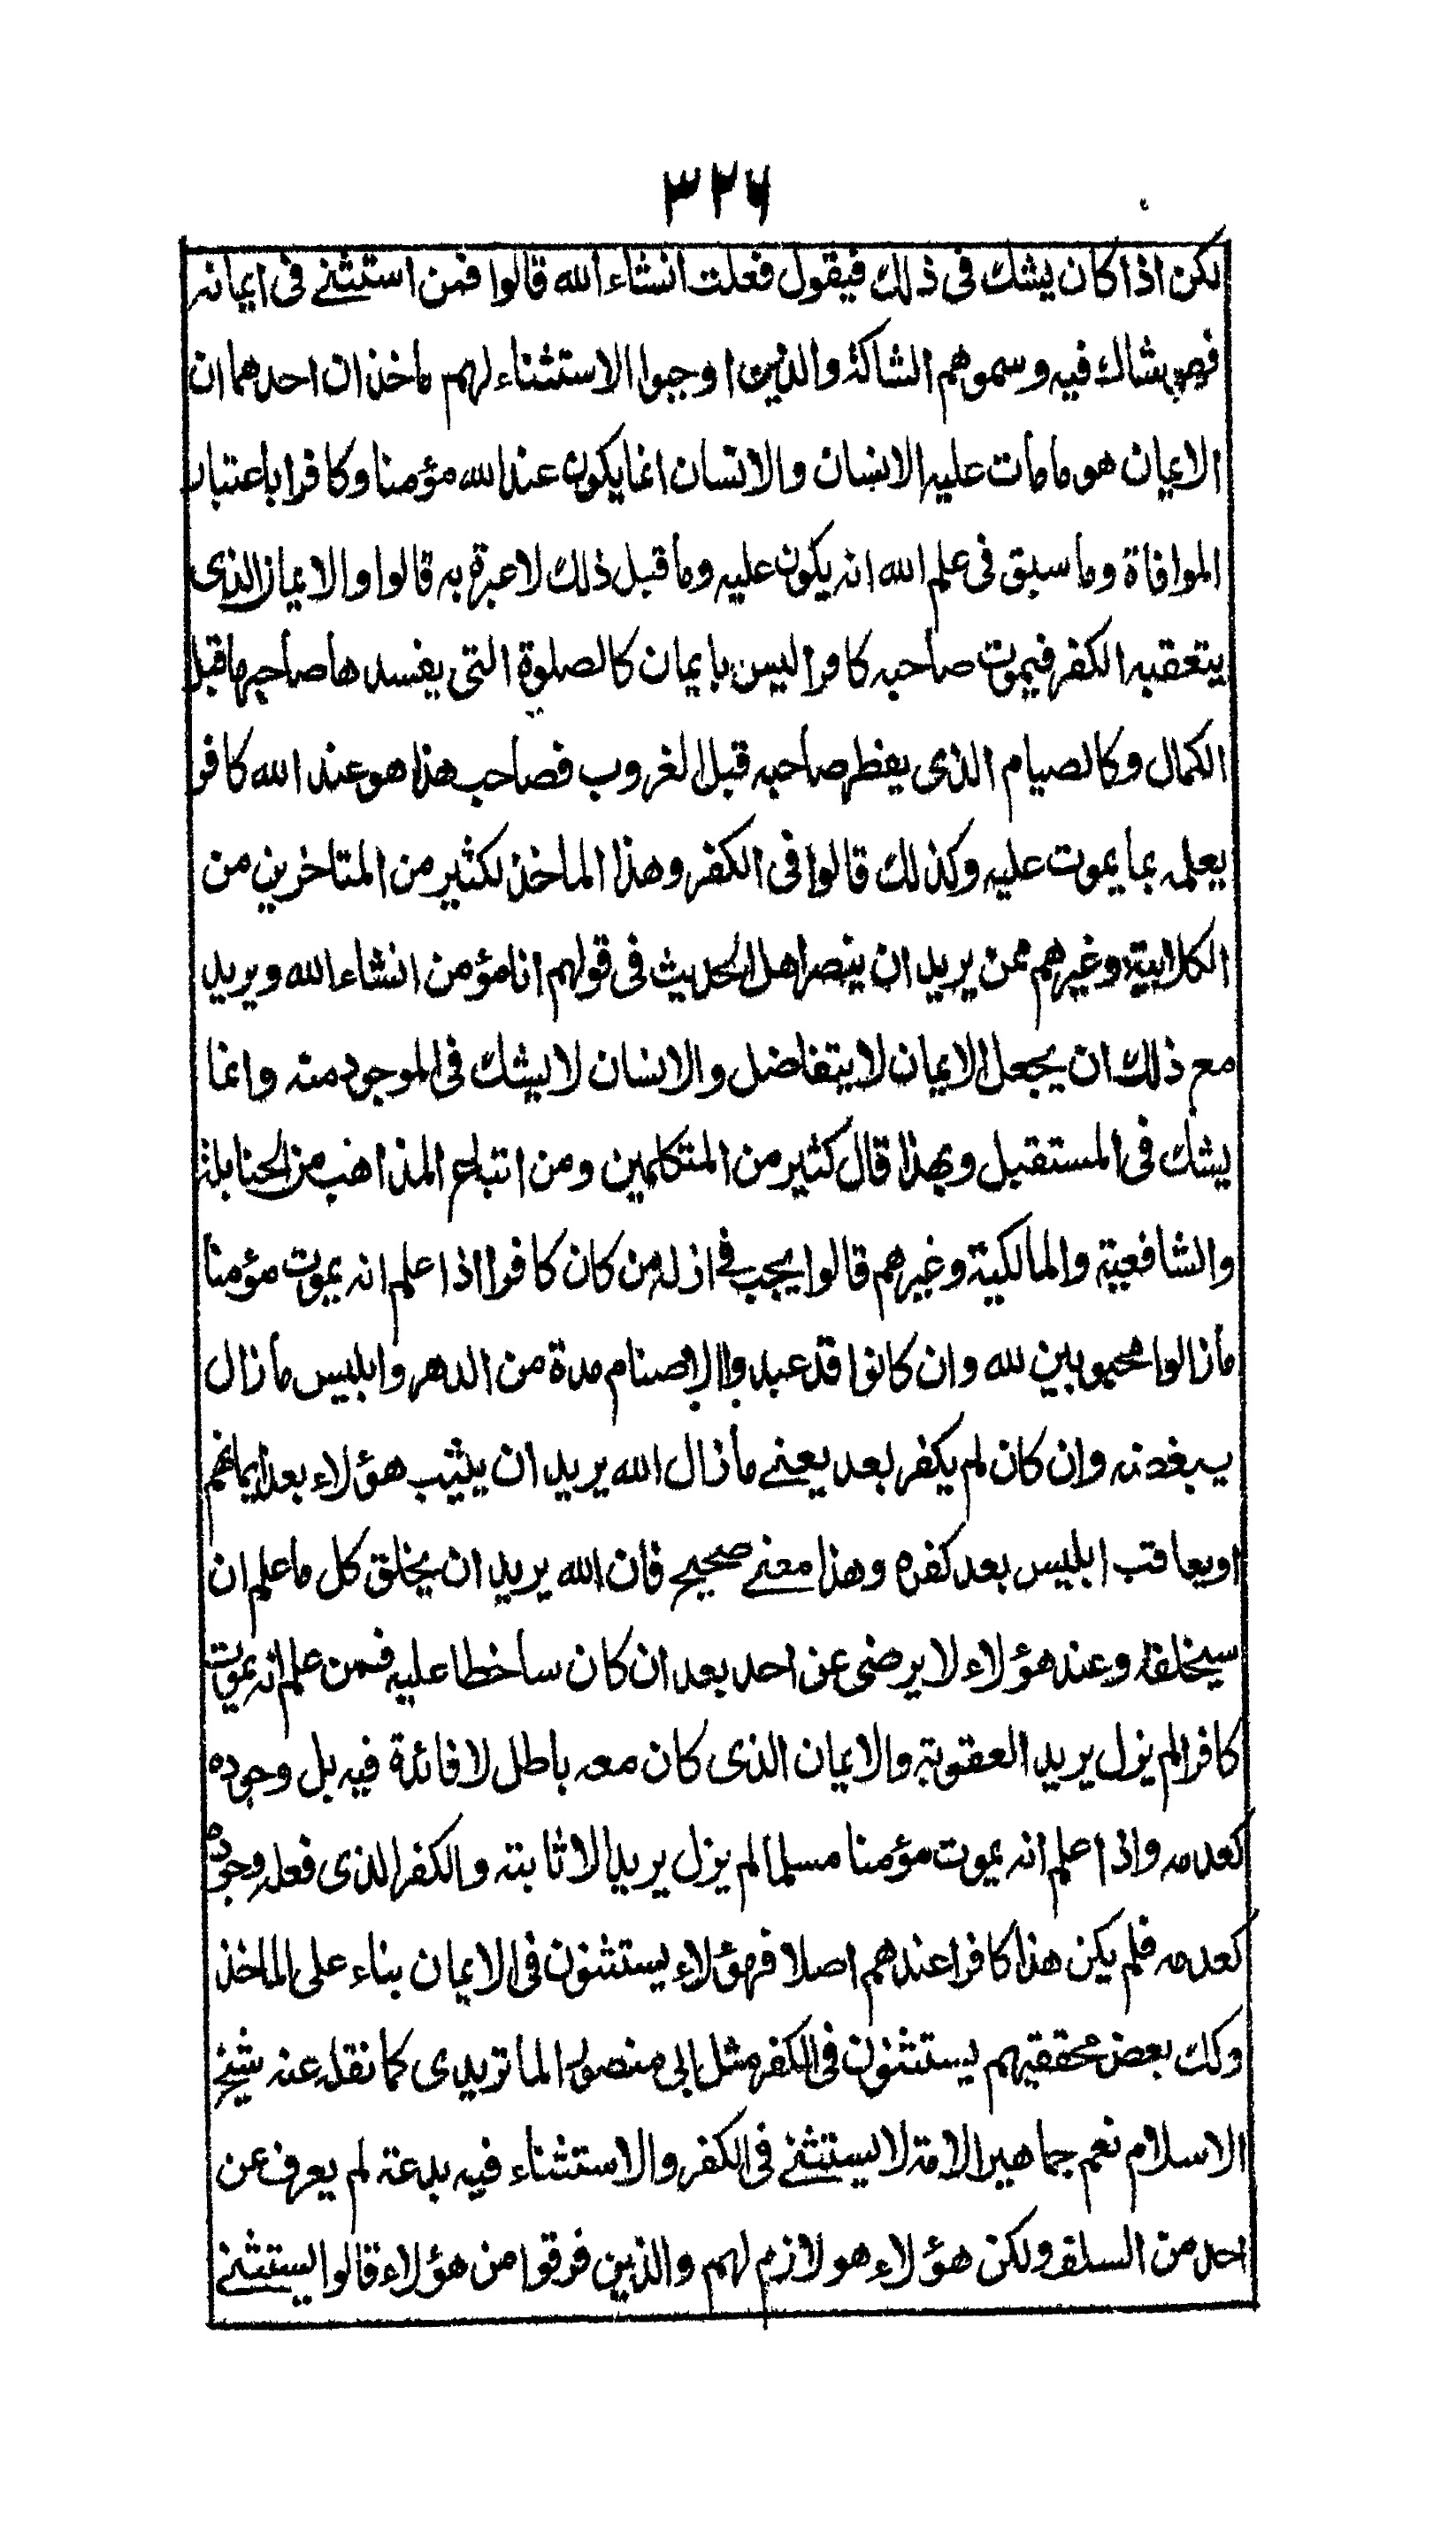 ٣٢٦
لكن اذا كان يشك فى ذلك فيقول فعلت انشاء الله قالوا فمن استثنے فى ايمانه
فهو شاك فيه وسموهم الشاكة والذين اوجبوا الاستثناء لهم ماخذان احدهما ان
الايمان هو مامات عليه الانسان والانسان انما يكون عند الله مؤمنا وكافرا باعتبار
الموافاة وما سبق فى علم الله انه يكون عليه وما قبل ذلك لاعبرة به قالوا والايمان الذى
يتعقبه الكفر فيموت صاحبه كافرا ليس بايمان كالصلوة التى يفسدها صاحبها قبل
الكمال وكالصيام الذى يفطر صاحبه قبل الغروب فصاحب هذا هو عند الله كافر
يعلمه بما يموت عليه وكذلك قالوا فى الكفر وهذا الماخذ لكثير من المتاخرين من
الكلابية وغيرهم ممن يريد ان ينصر اهل الحديث فى قولهم انا مؤمن انشاء الله ويريد
مع ذلك ان يجعل الايمان لا يتفاضل والانسان لا يشك فى الموجود منه وانما
يشك فى المستقبل وبهذا قال كثير من المتكلمين ومن اتباع المذاهب من الحنابلة
والشافعية والمالكية وغيرهم قالوا يجب فے ازله من كان كافرا اذا علم انه يموت مؤمنا
مازالوا محبوبين لله وان كانوا قد عبدوا الاصنام مدة من الدهر وابليس مازال
يبغضه وان كان لم يكفر بعد يعنے مازال الله يريد ان يثيب هؤلاء بعد ايمانهم
اويعاقب ابليس بعد كفره وهذا معنے صحيح فان الله يريد ان يخلق كل ما علم ان
سيخلقه وعند هؤلاء لا يرضى عن احد بعد ان كان ساخطا عليه فمن علم انه يموت
كافرا لم يزل يريد العقوبة والايمان الذى كان معه باطل لا فائدة فيه بل وجوده
كعدمه واذا علم انه يموت مؤمنا مسلما لم يزل يريد الاثابته والكفر الذى فعله وجوده
كعدمه فلم يكن هذا كافرا عندهم اصلا فهؤلاء يستثنون فى الايمان بناء على الماخذ
وكك بعض محققيهم يستثنون فى الكفر مثل ابى منصور الماتريدى كما نقله عنه شيخ
الاسلام نعم جماهير الامة لا يستثنے فى الكفر والاستثناء فيه بدعة لم يعرف عن
احد من السلف ولكن هؤلاء هو لازم لهم والذين فرقوا من هؤلاء قالوا يستثنے